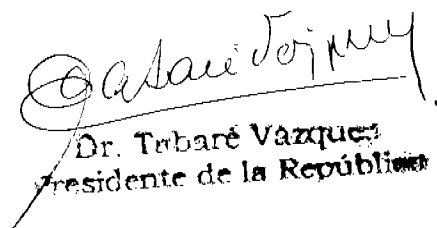 Tabaré Vázquez
Dr. Tabaré Vázquez
Presidente de la República